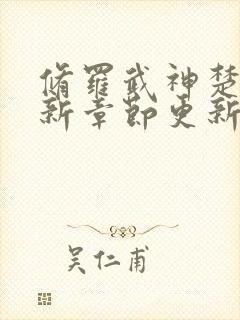 脩羅武神楚
新章節更新
吴仁甫